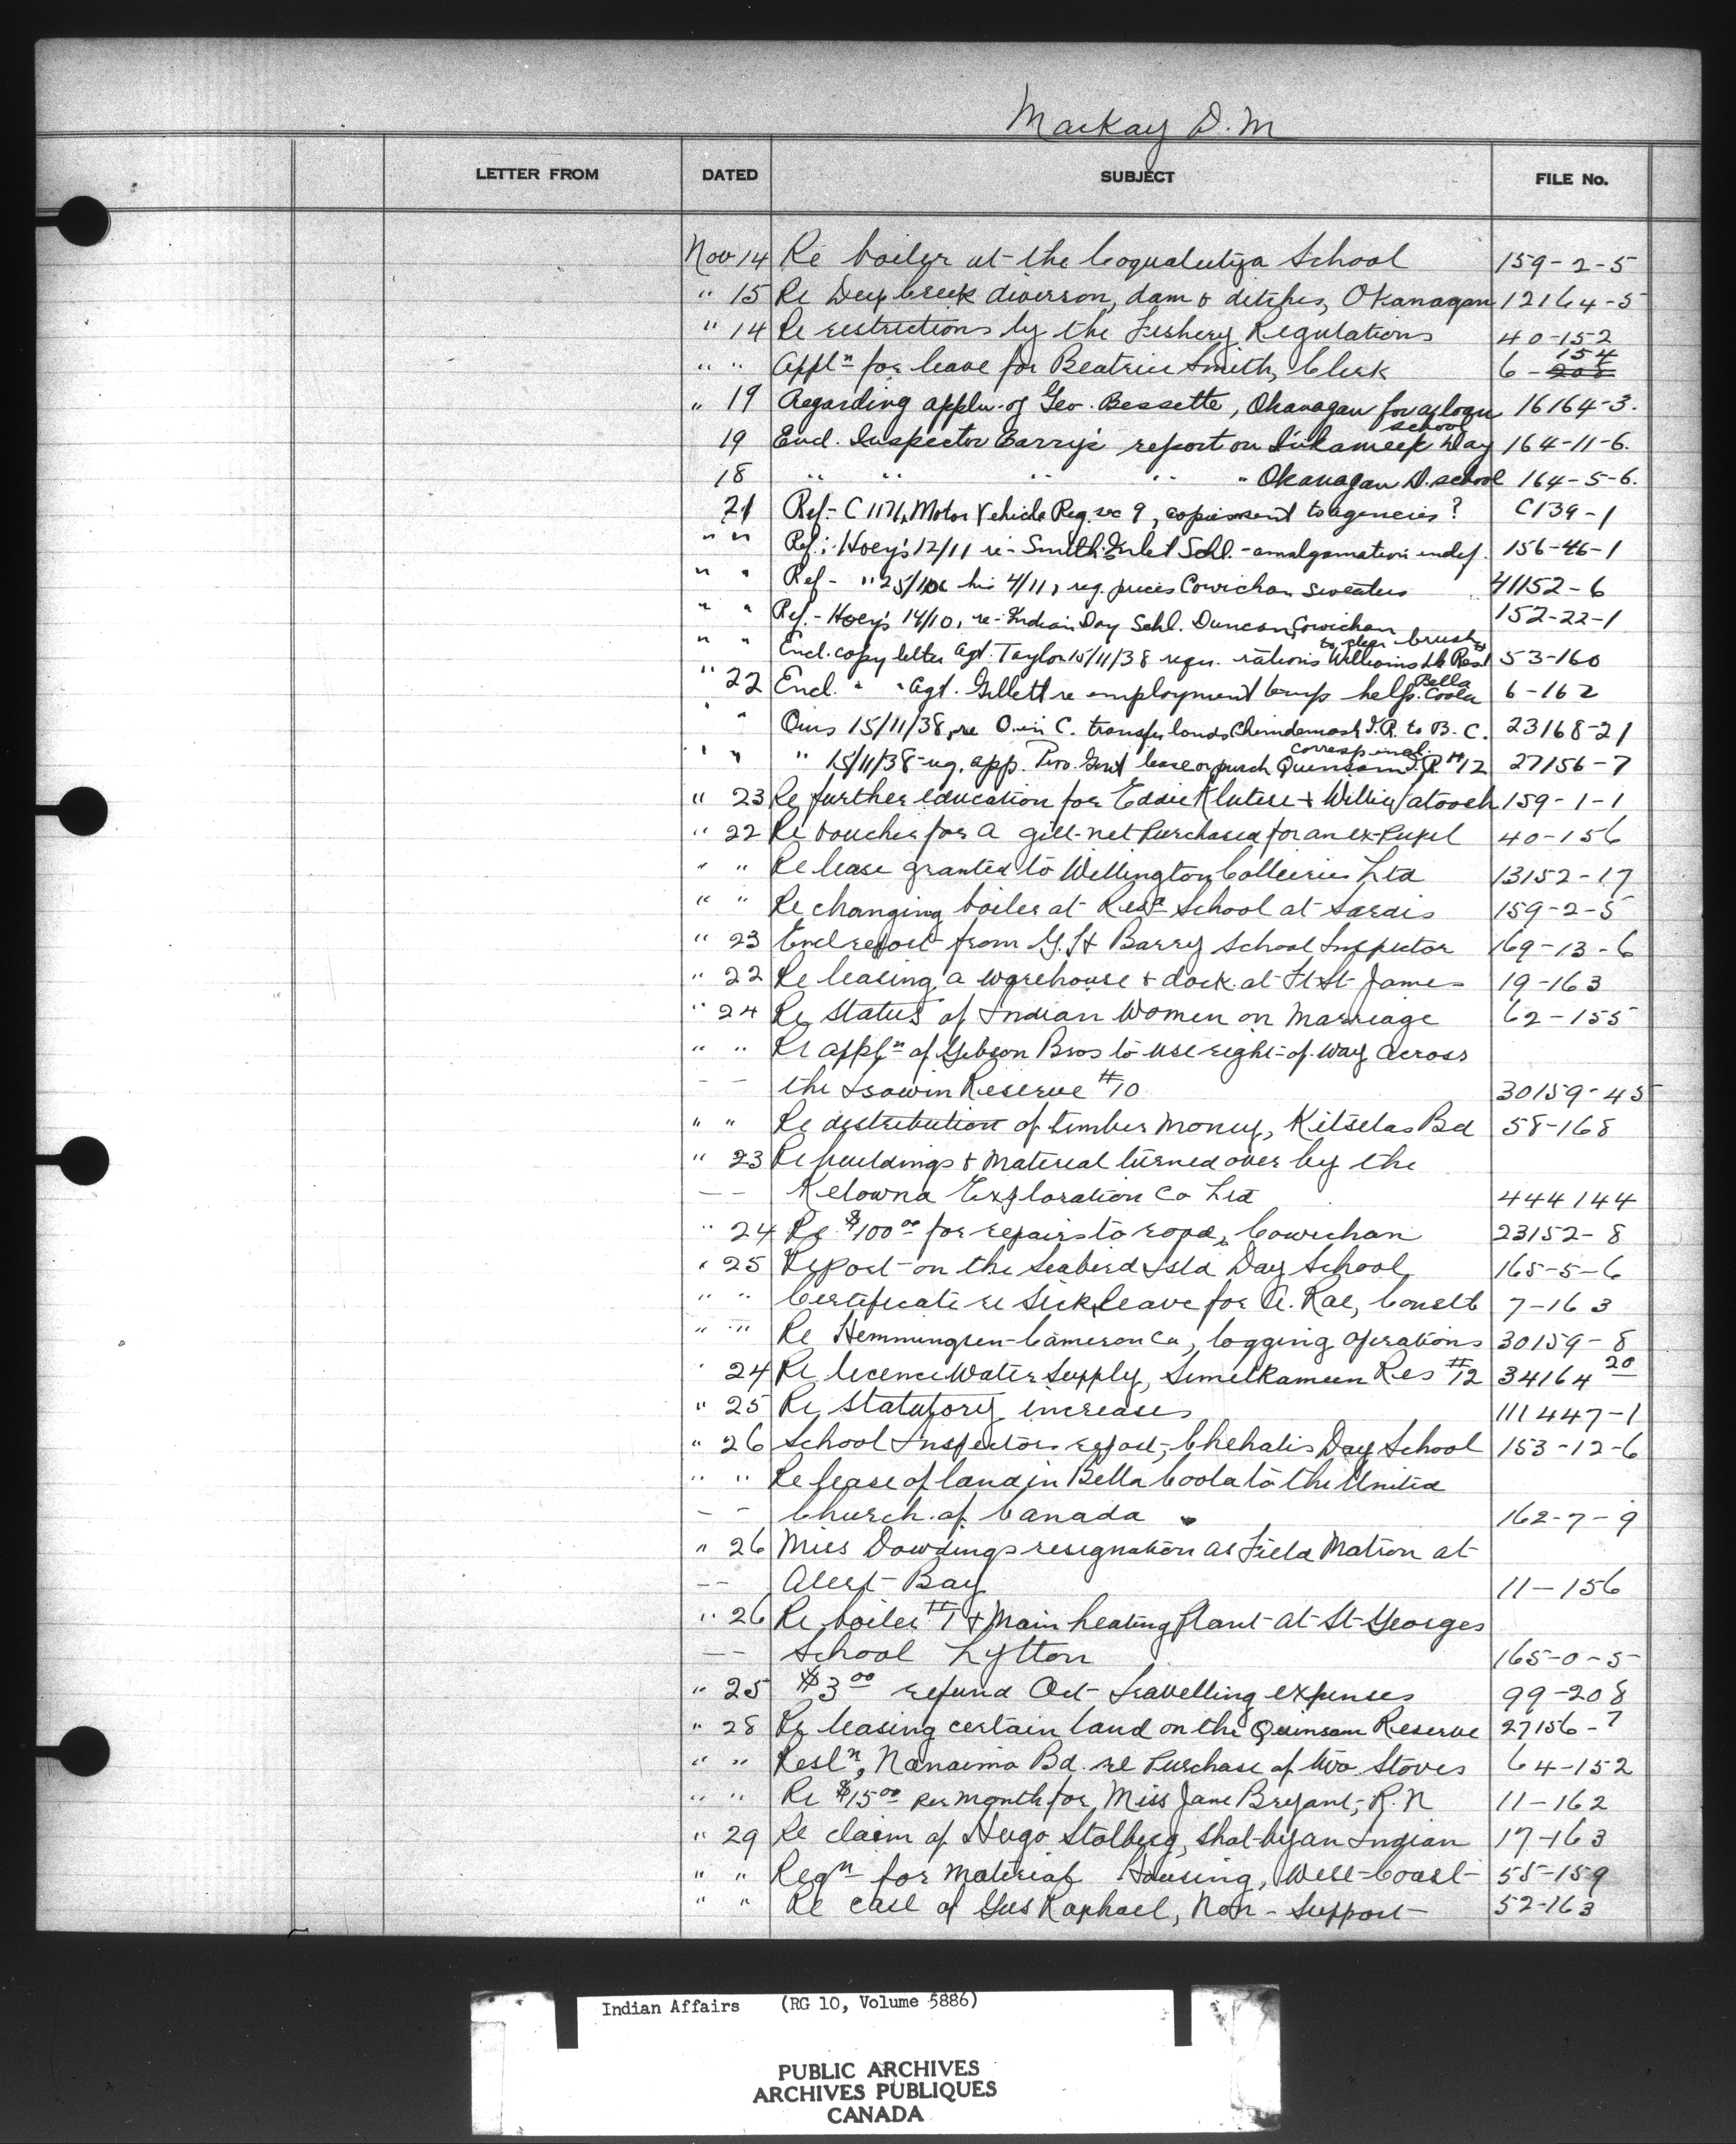 Mackay D.M
LETTER FROM DATED SUBJECT FILE No.
Nov 14 Re boiler at the Coqualeetza School 159-2-5
" 15 Re Deep Creek diverson, dam & ditches, Okanagan 12164-5
" 14 Re restrictions by the Fishery Regulations 40-152
" " Appl<sup>n</sup> for leave for Beatrice Smith, Clerk 6-208 154
" 19 Regarding appln. of Geo. Bessette, Okanagan for a loan 16164-3.
19 Encl. Inspector Barry's report on Inkameep Day school 164-11-6.
18 " " " " " Okanagan D. school 164-5-6.
21 Ref- C 1171, Motor Vehicle Reg. sec 9, copies sent to agencies? C139-1
" " Ref: Hoey's 12/11 re- Smith Inlet Schl. - amalgamation indef. 156-46-1
" " Ref- " 25/10 & his 4/11, reg. prices Cowichan Sweaters 41152-6
" " Ref.- Hoey's 14/10, re- Indian Day Schl. Duncan, Cowichan 152-22-1
" " Encl. copy letter Agt. Taylor 15/11/38 requ. rations Williams Lk Resdts to clear brush 53-160
" 22 Encl. " " Agt. Gillett re employment temp help. Bella Coola 6-162
" " Ours 15/11/38, re O. in C. transfer lands Chemdemash I.R. to B.C. 23168-21
" " " 15/11/38-reg. app. Prov. Govt lease or purch Quinsam I.R. #12 corresp encl. 27156-7
" 23 Re further education for Eddie Klutese & Willie Tatoosh 159-1-1
" 22 Re voucher for a gill-net purchased for an ex-Pupil 40-156
" " Re lease granted to Wellington Collieries Ltd 13152-17
" " Re changing boiler at Resd School at Sardis 159-2-5
" 23 Encl report from G.H Barry School Inspector 169-13-6
" 22 Re leasing a warehouse & dock at Ft St James 19-163
" 24 Re Status of Indian Women on Marriage 62-155
" " Re appl<sup>n</sup> of Gibson Bros to use right-of-way across
- - the Isowin Reserve #10 30159-45
" " Re distribution of timber money, Kitselas Bd 58-168
" 23 Re buildings & material turned over by the
- - Kelowna Exploration Co Ltd 444144
" 24 Re $100<sup>00</sup> for repairs to road, Cowichan 23152-8
" 25 Report on the Seabird Isld Day School 165-5-6
" " Certificate re Sick leave for A. Rae, Const 7-163
" " Re Hemmingsen-Cameron Co, logging operations 30159-8
" 24 Re licence Water Supply, Similkameen Res #12 34164 20
" 25 Re Statutory increases 111447-1
" 26 School Inspectors report, Chehalis Day School 153-12-6
" " Re lease of land in Bella Coola to the United
- - Church of Canada 162-7-9
" 26 Miss Dowdings resignation as Field Matron at
- - Alert Bay 11-156
" 26 Re boiler #1 & Main heating Plant at St Georges
- - School Lytton 165-0-5
" 25 $3<sup>00</sup> refund Oct travelling expenses 99-208
" 28 Re leasing certain land on the Quinsam Reserve 27156-7
" " Resl<sup>n</sup>, Nanaimo Bd. re Purchase of two Stoves 64-152
" " Re $15<sup>00</sup> per month for Miss Jane Bryant, R.N 11-162
" 29 Re claim of Hugo Stolberg, shot by an Indian 17-163
" " Reqn for material Housing, West Coast 55-159
" " Re case of Gus Raphael, Non-Support 52-163
Indian Affairs (RG 10, Volume 5886)
PUBLIC ARCHIVES
ARCHIVES PUBLIQUES
CANADA